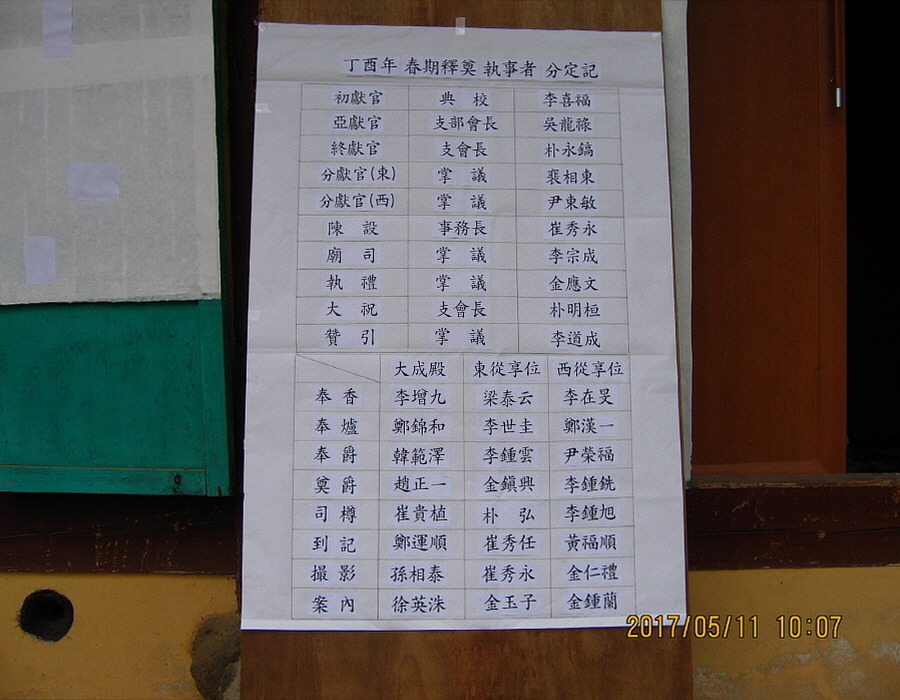 丁酉年 春期釋奠 執事者 分定記
初獻官 典 校 李喜福
亞獻官 支部會長 吳龍祿
終獻官 支會長 朴永鎬
分獻官(東) 掌 議 裵相東
分獻官(西) 掌 議 尹東敏
陳 設 事務長 崔秀永
廟 司 掌 議 李宗成
執 禮 掌 議 金應文
大 祝 支會長 朴明桓
贊 引 掌 議 李道成
大成殿 東從享位 西從享位
奉 香 李增九 梁泰云 李在旻
奉 爐 鄭錦和 李世圭 鄭漢一
奉 爵 韓範澤 李鍾雲 尹榮福
奠 爵 趙正一 金鎭興 李鍾銑
司 樽 崔貴植 朴 弘 李鍾旭
到 記 鄭運順 崔秀任 黃福順
撮 影 孫相泰 崔秀永 金仁禮
案 內 徐英洙 金玉子 金鍾蘭
2017/05/11 10:07